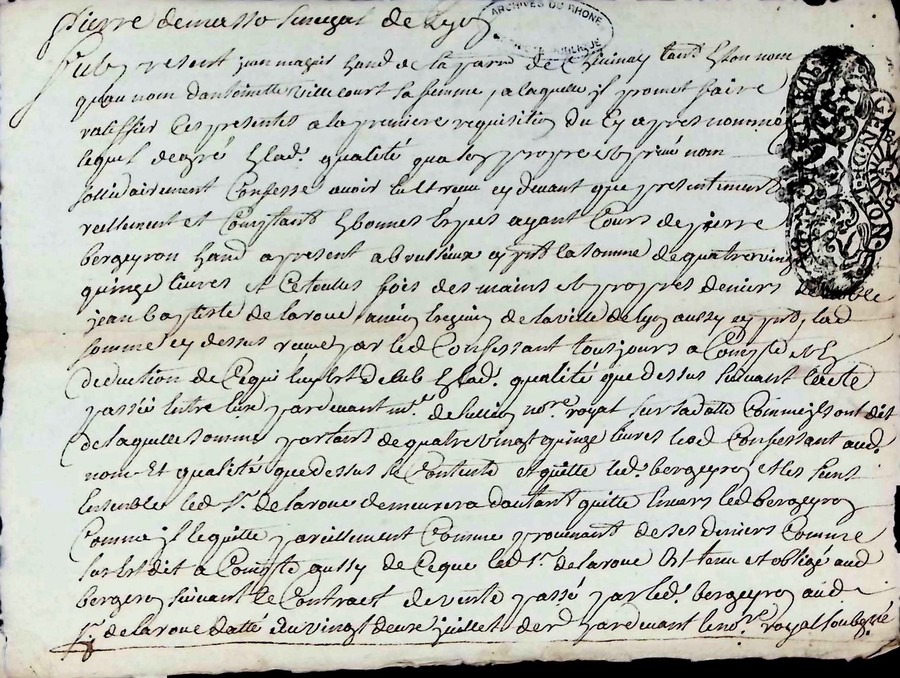 pierre demasso senegal de Lyon
ARCHIVES DU RHONE
fut present jean magis hand de la par de tant en son nom
quau nom danthoinette villecourt sa femme a laquelle il promet faire
ratiffier ces presentes a la premiere requisition du cy apres nommé
lequel de gré et lad. qualité que son propre et privé nom
sollidairement Confesse avoir eu et receu cy devant que presentement
reellement et Comptant en bonnes Espes ayant Cours de pierre
bergeyron hand a present a cy pnt la somme de quatre ving
quinze livres et ce toutes fois des mains et propres deniers de noble
jean baptiste de laroue ancien Eschevin de la ville de Lyon aussy cy pnt, lad
somme cy dessus receue par led Confessant tousjours a Compte et En
deduction de Cequi luy est deub En lad. qualité que dessus suivant lacte
passée entre eux pardevant me. nore. royal sur sa datte Comme ils ont dit
de laquelle somme partant de quatre vingt quinze livres led Confessant aud.
nom Et qualité que dessus se Contente et quitte led. bergeyron et les siens
Ensemble led Sr. de laroue demeurera dautant quitte Envers led bergeyron
Comme il le quitte pareillement Comme provenant de ses deniers Comme
sus est dit a Compte aussy de Ceque led Sr. de laroue Est tenu et obligé aud
bergeron suivant le Contract de vente passé par led. bergeyron aud
Sr. de laroue datté du vingt deux juillet der pardevant le nore. royal soubsigné
GENERATION DE LYON